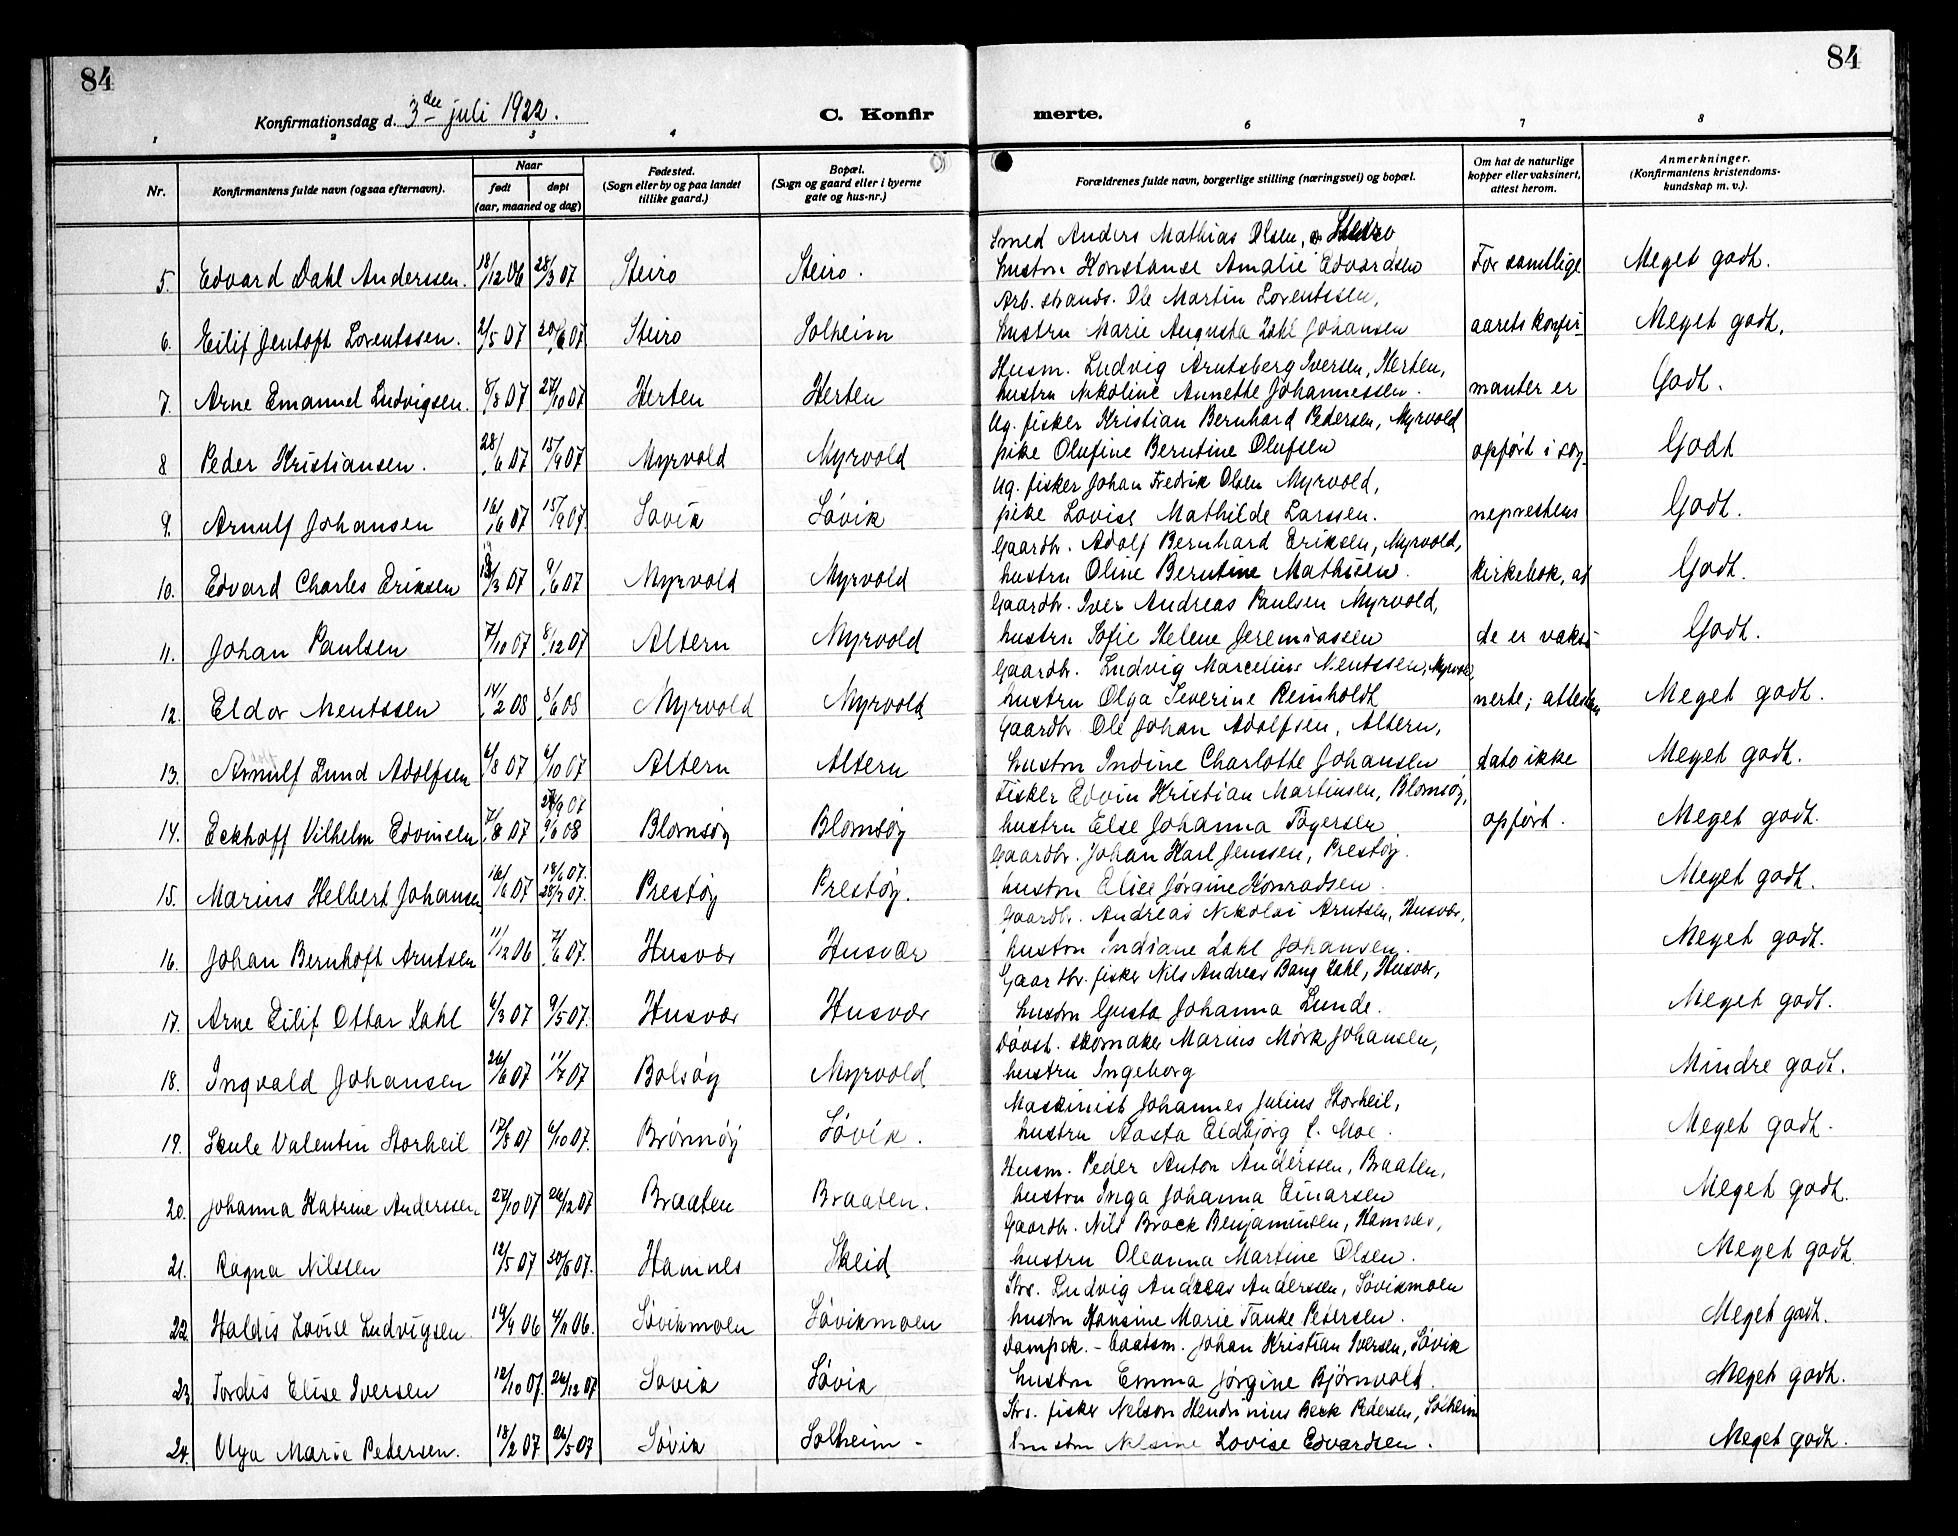 84
84
Konfirmationsdag d. 3die juli 1922.
C. Konfirmerte.
1 2 3 4 6 7 8
Nr.
Konfirmantens fulde navn (ogsaa efternavn).
Naar
født
døpt
(aar, maaned og dag)
Fødested.
(Sogn eller by og paa landet
tillike gaard.)
Bopæl.
(Sogn og gaard eller i byerne
gate og hus-nr.)
Forældrenes fulde navn, borgerlige stilling (næringsvei) og bopæl.
Om hat de naturlige
kopper eller vaksinert,
attest herom.
Anmerkninger.
(Konfirmantens kristendoms-
kundskap m. v.).
Smed Anders Mathias Olsen, Steiro
5. Edvard Dahl Anderssen. 18/12 06 28/3 07 Steiro Steiro. hustru Konstanse Amalie Edvardsen For samtlige Meget godt.
Arb. strands. Ole Martin Lorentssen,
6. Eilif Jentoft Lorentssen. 2/5 07 20/6 07 Steiro Solheim hustru Marie Augusta Zahl Johansen aarets konfir- Meget godt.
Husm. Ludvig Arntsberg Iversen, Herten,
7. Arne Emanuel Ludvigsen. 8/8 07 27/10 07 Herten Herten hustru Nikoline Annethe Johannessen. manter er Godt.
Ug. fisker Kristian Bernhard Pedersen, Myrvold
8 Peder Kristiansen. 28/6 07 15/9 07 Myrvold Myrvold pike Olufine Berntine Olufsen opført i sog- Godt
Ug. fisker Johan Fredrik Olsen Myrvold,
9. Arnulf Johansen 16/6 07 15/9 07 Søvik Søvik pike Lovise Mathilde Larssen. neprestens Godt.
Gaardbr. Adolf Bernhard Eriksen, Myrvold,
10. Edvard Charles Eriksen /3 07 9/6 07 Myrvold Myrvold hustru Oline Berntine Mathisen. kirkebok, at Godt.
Gaardbr. Iver Andreas Paulsen Myrvold,
11. Johan Paulsen 7/10 07 8/12 07 Altern Myrvold hustru Sofie Helene Jeremiassen de er vaksi- Godt.
Gaardbr. Ludvig Marcelius Mentssen, Myrvold,
12. Eldor Mentssen 14/2 08 8/6 08 Myrvold Myrvold hustru Olga Severine Reinholdt nerte; attestens Meget godt.
Gaardbr. Ole Johan Adolfsen, Altern,
13. Arnulf Lund Adolfsen 6/8 07 6/10 07 Altern Altern hustru Indine Charlotte Johansen dato ikke Meget godt.
Fisker Edvin Kristian Martinsen, Blomsøy,
14. Eckhoff Vilhelm Edvinsen 7/8 07 9/6 08 Blomsøy Blomsøy hustru Else Johanna Togersen opført. Meget godt.
Gaardbr. Johan Karl Jenssen, Prestøy.
15. Marius Helbert Johansen 16/6 07 28/7 07. Prestøy Prestøy. hustru Elise Jørgine Konradsen. Meget godt.
Gaardbr. Andreas Nikolai Arntsen, Husvær,
16. Johan Bernhoft Arntsen 11/12 06 7/6 07. Husvær Husvær hustru Indiane Zahl Johansen. Meget godt.
Gaardbr. fisker Nils Andreas Bang Zahl, Husvær,
17. Arne Eilif Ottar Zahl 6/3 07 9/5 07. Husvær Husvær hustru Gusta Johanna Lunde. Meget godt.
Døvst. skomaker Marius Mørk Johansen,
18. Ingvald Johansen 26/6 07 11/7 07 Bolsøy Myrvold hustru Ingeborg Mindre godt.
Maskinist Johannes Julius Storheil,
19. Skule Valentin Storheil 17/8 07 6/10 07. Brønnøy Søvik. hustru Aasta Eldbjørg f. Moe. Meget godt.
Husm. Peder Anton Anderssen, Braaten,
20. Johanna Katrine Anderssen. 27/10 07 26/12 07 Braaten Braaten. hustru Inga Johanna Einarsen Meget godt.
Gaardbr. Nils Brock Benjaminsen, Hamnes,
21. Ragna Nilssen 12/5 07 30/6 07. Hamnes Skeid hustru Oleanna Martine Olsen. Meget godt.
Strs. Ludvig Andreas Anderssen, Søvikmoen
22. Haldis Lovise Ludvigsen. 19/9 06 4/11 06. Søvikmoen Søvikmoen hustru Hansine Marie Tanke Petersen. Meget godt.
Dampsk. - baatsm. Johan Kristian Iversen, Søvik
23. Tordis Elise Iversen 12/10 07. 26/12 07 Søvik Søvik hustru Emma Jørgine Bjørnvold. Meget godt.
Strs. fisker Nelson Hendrinius Beck Pedersen, Solheim
24. Olga Marie Petersen. 18/2 07 26/5 07 Søvik Solheim - hustru Nelsine Lovise Edvardsen. Meget godt.